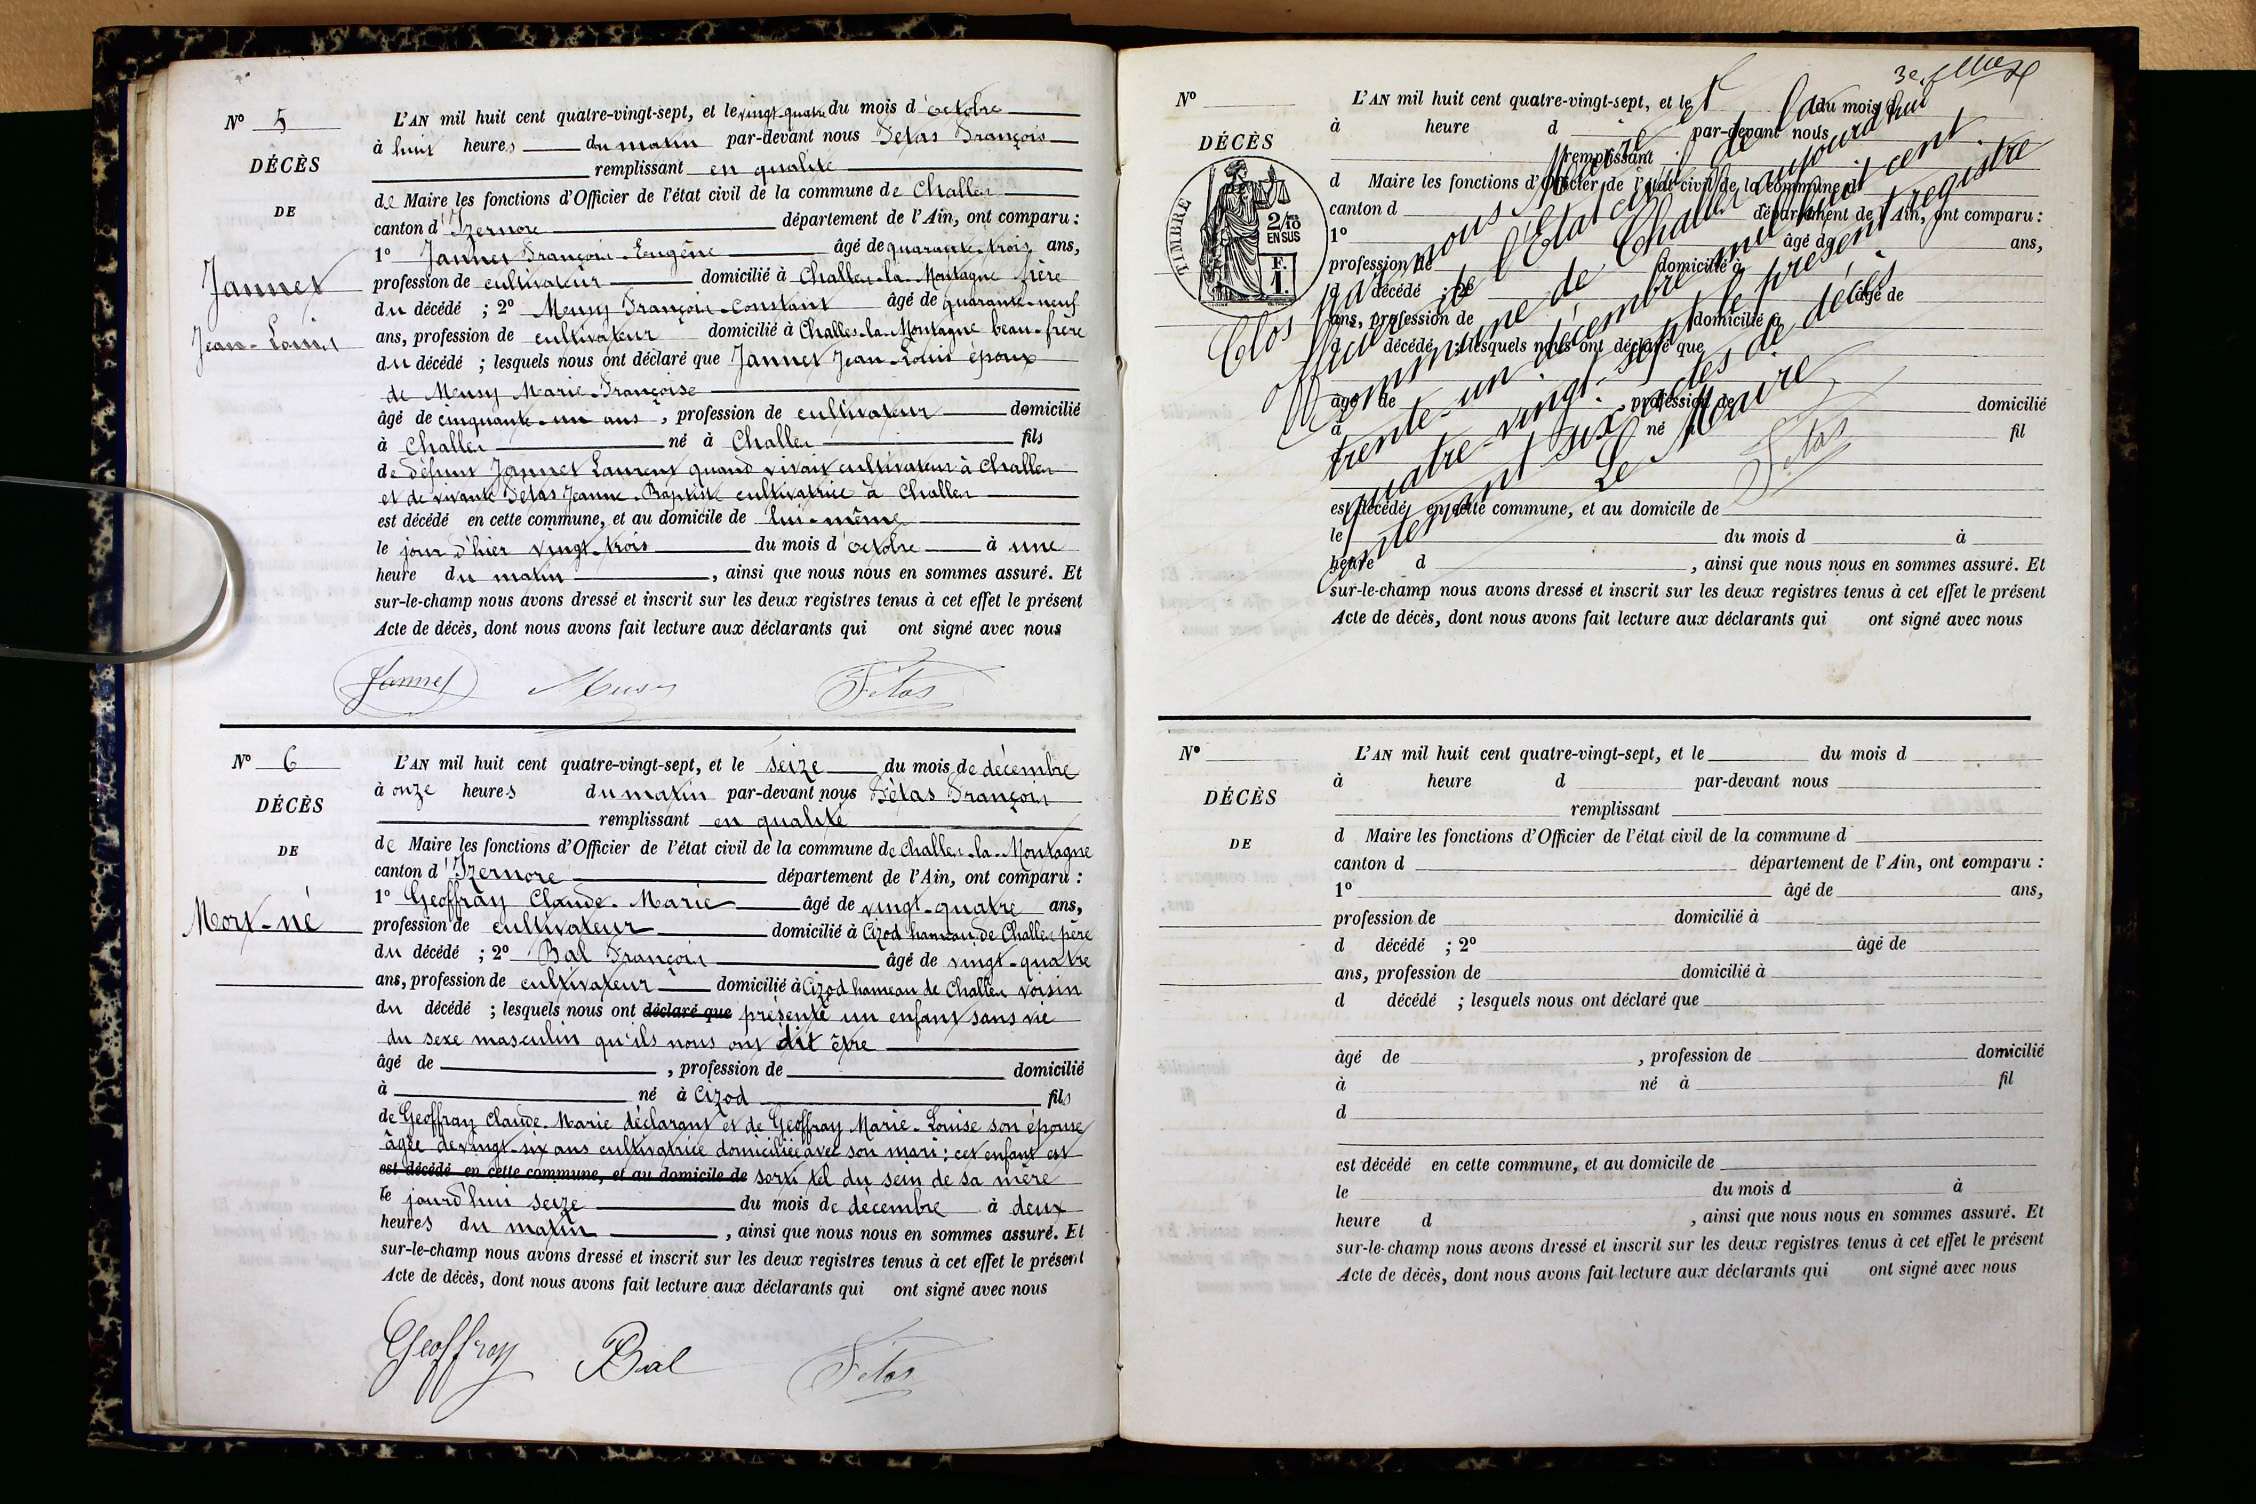 N° 5
DÉCÈS
DE
Jannet
Jean-Louis
L'AN mil huit cent quatre-vingt-sept, et le vingt-quatre du mois d'octobre
à huit heures du matin par-devant nous Félas François
remplissant en qualité
de Maire les fonctions d'Officier de l'état civil de la commune de Challes
canton d'Izernore département de l'Ain, ont comparu :
1° Jannet François-Eugène âgé de quarante-trois ans,
profession de cultivateur domicilié à Challes-la-Montagne frère
du décédé ; 2° Meusy François-Constant âgé de quarante-neuf
ans, profession de cultivateur domicilié à Challes-la-Montagne beau-frère
du décédé ; lesquels nous ont déclaré que Jannet Jean-Louis époux
de Meusy Marie-Françoise
âgé de cinquante-un ans, profession de cultivateur domicilié
à Challes né à Challes fils
de défunt Jannet Laurent quand vivait cultivateur à Challes
et de vivante Félas Jeanne-Baptiste cultivatrice à Challes
est décédé en cette commune, et au domicile de lui-même
le jour d'hier vingt-trois du mois d'octobre à une
heure du matin, ainsi que nous nous en sommes assuré. Et
sur-le-champ nous avons dressé et inscrit sur les deux registres tenus à cet effet le présent
Acte de décès, dont nous avons fait lecture aux déclarants qui ont signé avec nous
Jannet Meusy Félas
N° 6
DÉCÈS
DE
Mort-né
L'AN mil huit cent quatre-vingt-sept, et le seize du mois de décembre
à onze heures du matin par-devant nous Félas François
remplissant en qualité
de Maire les fonctions d'Officier de l'état civil de la commune de Challes-la-Montagne
canton d'Izernore département de l'Ain, ont comparu :
1° Geoffray Claude-Marie âgé de vingt-quatre ans,
profession de cultivateur domicilié à Cizod hameau de Challes père
du décédé ; 2° Bal François âgé de vingt-quatre
ans, profession de cultivateur domicilié à Cizod hameau de Challes voisin
du décédé ; lesquels nous ont déclaré que présenté un enfant sans vie
du sexe masculin qu'ils nous ont dit être
âgé de , profession de domicilié
à né à Cizod fils
de Geoffray Claude-Marie déclarant et de Geoffray Marie-Louise son épouse
âgée de vingt-six ans cultivatrice domiciliée avec son mari : cet enfant est
est décédé en cette commune, et au domicile de sorti tel du sein de sa mère
le jourd'hui seize du mois de décembre à deux
heures du matin, ainsi que nous nous en sommes assuré. Et
sur-le-champ nous avons dressé et inscrit sur les deux registres tenus à cet effet le présent
Acte de décès, dont nous avons fait lecture aux déclarants qui ont signé avec nous
Geoffray Bal Félas
3e
N°
DÉCÈS
TIMBRE
2/10 EN SUS
F. 1.
L'AN mil huit cent quatre-vingt-sept, et le du mois d
à heure d par-devant nous
remplissant
d Maire les fonctions d'Officier de l'état civil de la commune d
canton d département de l'Ain, ont comparu :
1° âgé de ans,
profession de domicilié à
d décédé ; 2° âgé de
ans, profession de domicilié à
d décédé ; lesquels nous ont déclaré que
âgé de , profession de domicilié
à né à fil
est décédé en cette commune, et au domicile de
le du mois d à
heure d , ainsi que nous nous en sommes assuré. Et
sur-le-champ nous avons dressé et inscrit sur les deux registres tenus à cet effet le présent
Acte de décès, dont nous avons fait lecture aux déclarants qui ont signé avec nous
Clos par nous Maire et
officier de l'Etat civil de la
Commune de Challes aujourd'hui
trente-un décembre mil huit cent
quatre-vingt-sept le présent registre
contenant six actes de décès
Le Maire
Félas
N°
DÉCÈS
DE
L'AN mil huit cent quatre-vingt-sept, et le du mois d
à heure d par-devant nous
remplissant
d Maire les fonctions d'Officier de l'état civil de la commune d
canton d département de l'Ain, ont comparu :
1° âgé de ans,
profession de domicilié à
d décédé ; 2° âgé de
ans, profession de domicilié à
d décédé ; lesquels nous ont déclaré que
âgé de , profession de domicilié
à né à fil
d
est décédé en cette commune, et au domicile de
le du mois d à
heure d , ainsi que nous nous en sommes assuré. Et
sur-le-champ nous avons dressé et inscrit sur les deux registres tenus à cet effet le présent
Acte de décès, dont nous avons fait lecture aux déclarants qui ont signé avec nous